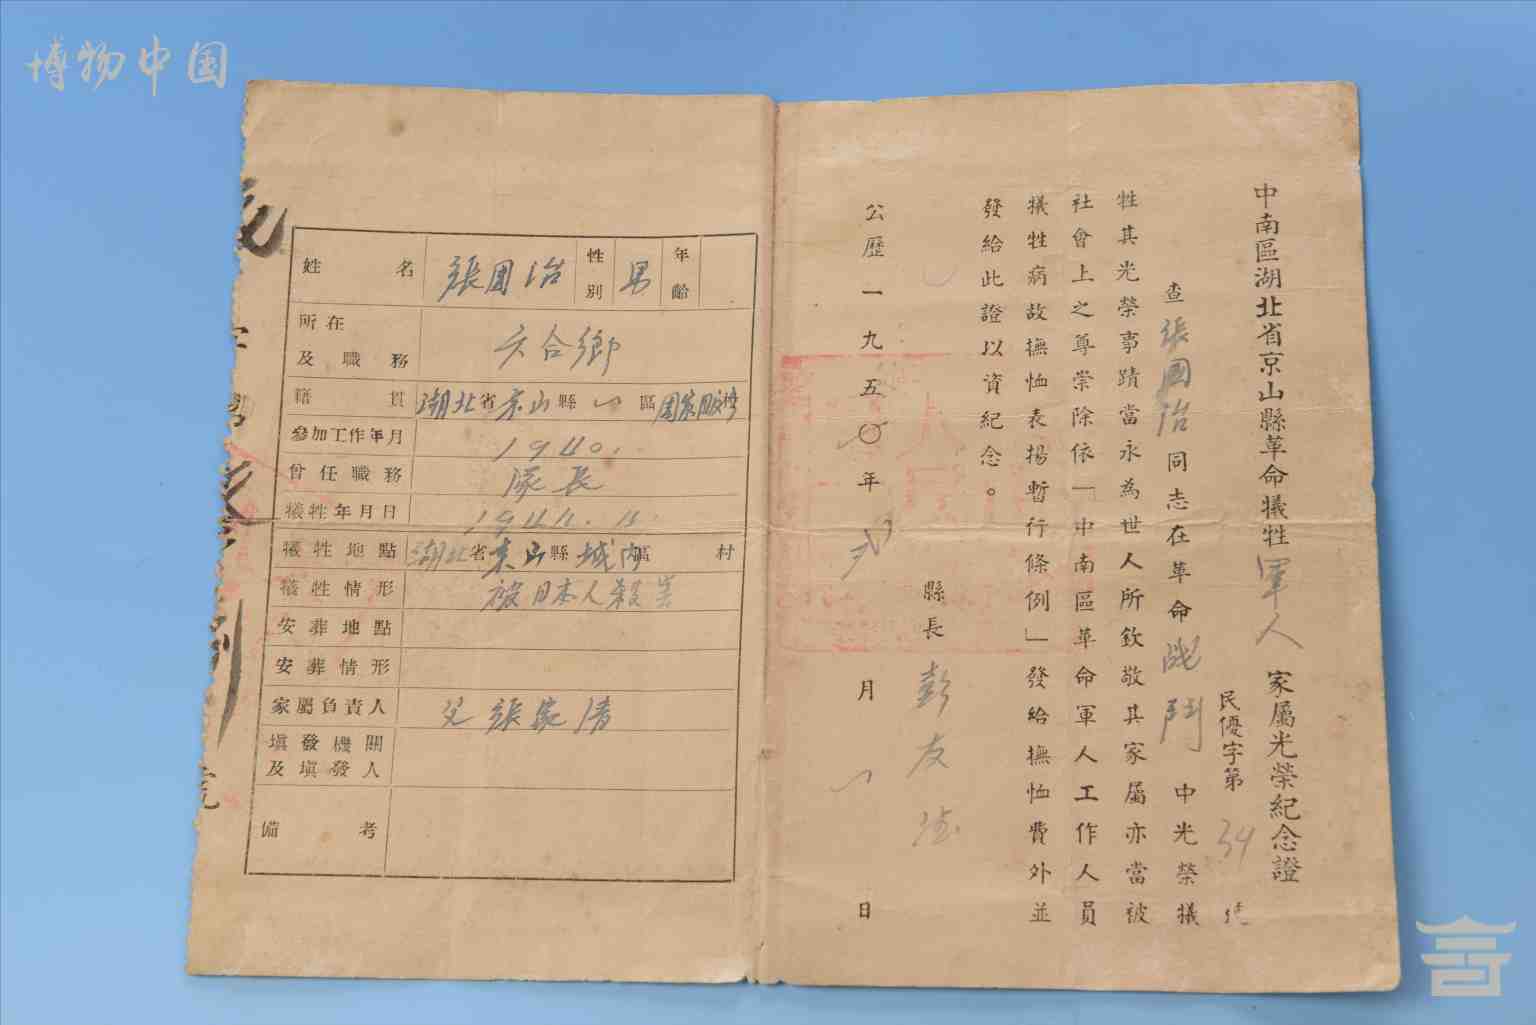 博物中国
中南區湖北省京山縣革命犧牲軍人家屬光榮紀念證
民優字第34號
查張國治同志在革命戰鬥中光榮犧
牲其光榮事蹟當永為世人所欽敬其家屬亦當被
社會上之尊崇除依「中南區革命軍人工作人員
犧牲病故撫恤表揚暫行條例」發給撫恤費外並
發給此證以資紀念。
縣長彭友德
公歷一九五〇年 月 日
姓名 張國治 性別 男 年齡
所在及職務 六合鄉
籍貫 湖北省京山縣一區周家畈村
參加工作年月 1940.
曾任職務 隊長
犧牲年月日
犧牲地點 湖北省京山縣城內區 村
犧牲情形 被日本人殺害
安葬地點
安葬情形
家屬負責人 父張家清
填發機關及填發人
備考